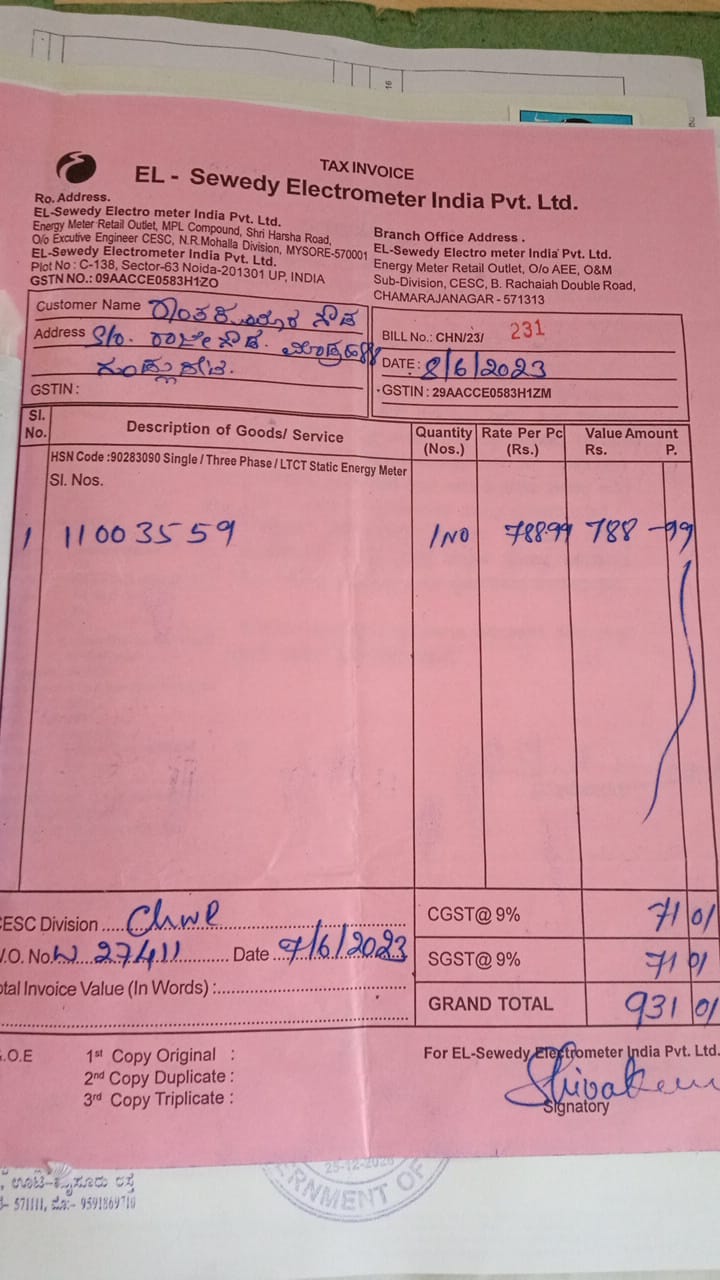 16
TAX INVOICE
EL - Sewedy Electrometer India Pvt. Ltd.
Ro. Address.
EL-Sewedy Electro meter India Pvt. Ltd.
Energy Meter Retail Outlet, MPL Compound, Shri Harsha Road,
O/o Excutive Engineer CESC, N.R.Mohalla Division, MYSORE-570001
EL-Sewedy Electrometer India Pvt. Ltd.
Plot No : C-138, Sector-63 Noida-201301 UP, INDIA
GSTN NO.: 09AACCE0583H1ZO
Branch Office Address .
EL-Sewedy Electro meter India Pvt. Ltd.
Energy Meter Retail Outlet, O/o AEE, O&M
Sub-Division, CESC, B. Rachaiah Double Road,
CHAMARAJANAGAR - 571313
Customer Name
Address S/o.
GSTIN :
BILL No.: CHN/23/ 231
DATE : 8/6/2023
GSTIN : 29AACCE0583H1ZM
Sl. No. Description of Goods/ Service Quantity (Nos.) Rate Per Pc (Rs.) Value Amount Rs. P.
HSN Code :90283090 Single / Three Phase / LTCT Static Energy Meter
Sl. Nos.
1 11003559 1NO 788.99 788 - 99
CESC Division
CGST@ 9% 71 01
27411 Date 7/6/2023
SGST@ 9% 71 01
Total Invoice Value (In Words) :
GRAND TOTAL 931 01
.O.E
1st Copy Original :
2nd Copy Duplicate :
3rd Copy Triplicate :
For EL-Sewedy Electrometer India Pvt. Ltd.
Signatory
ಊಟಿ-ಮೈಸೂರು ರಸ್ತೆ
571111, ಮೊ:- 9591869710
ERNMENT OF